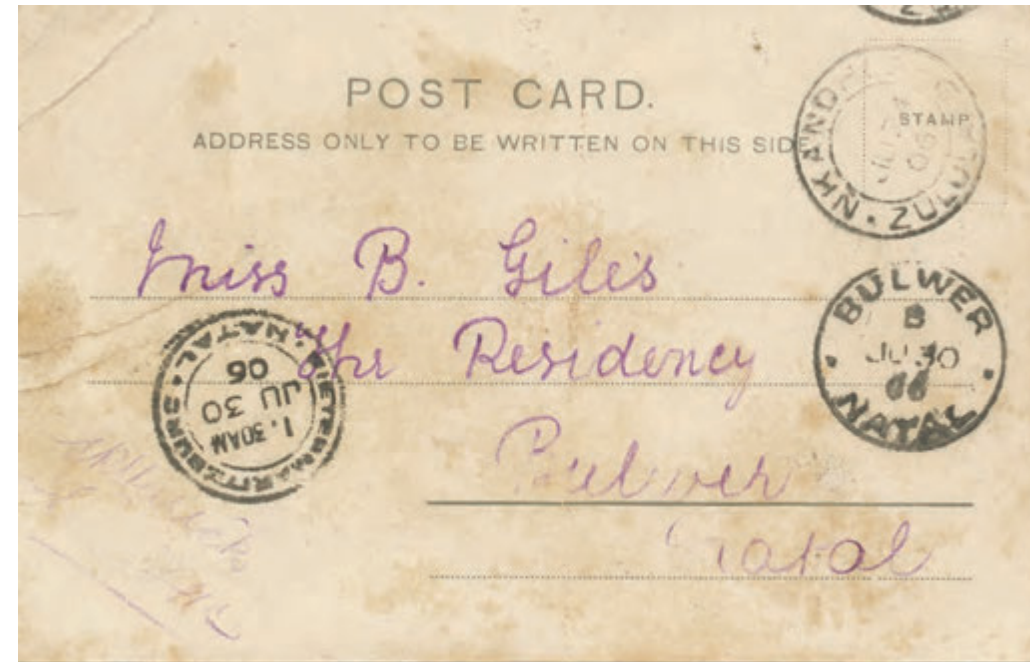 POST CARD.
ADDRESS ONLY TO BE WRITTEN ON THIS SIDE
STAMP
NKAND ZULUL
JU 06
Miss B. Giles
The Residency
Bulwer
Natal
BULWER
B
JU 30
06
NATAL
PIETERMARITZBURG · NATAL
1.30AM
JU 30
06